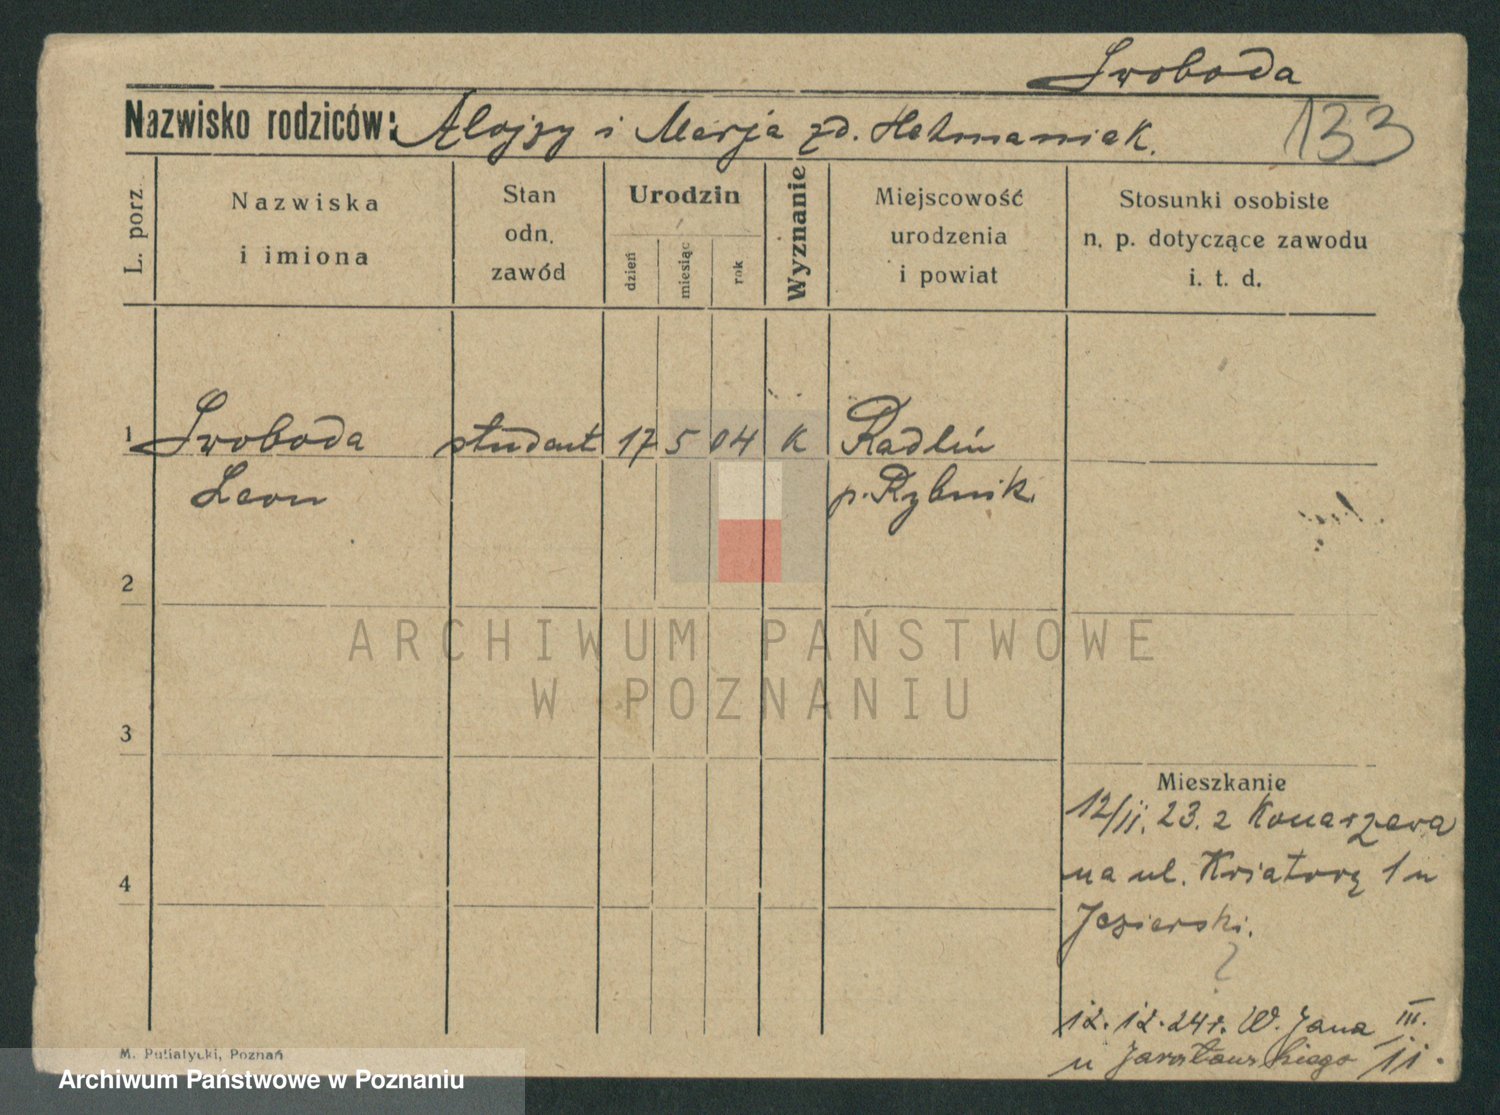 Swoboda
Nazwisko rodziców: Alojzy i Marja zd. Hetmaniak. 133
L. porz
Nazwiska
i imiona
Stan
odn.
zawód
Urodzin
dzień
miesiąc
rok
Wyznanie
Miejscowość
urodzenia
i powiat
Stosunki osobiste
n. p. dotyczące zawodu
i. t. d.
1 Swoboda student 17 5 04 K Radlin
Leon p. Rybnik.
2
ARCHIWUM PAŃSTWOWE
W POZNANIU
3
Mieszkanie
12/II. 23. z Konarzewa
4
na ul. 1 u
Jezierski.
12. 12. 24 r. W. Jana III.
u Jarosławskiego II.
M. Putiatycki, Poznań
Archiwum Państwowe w Poznaniu